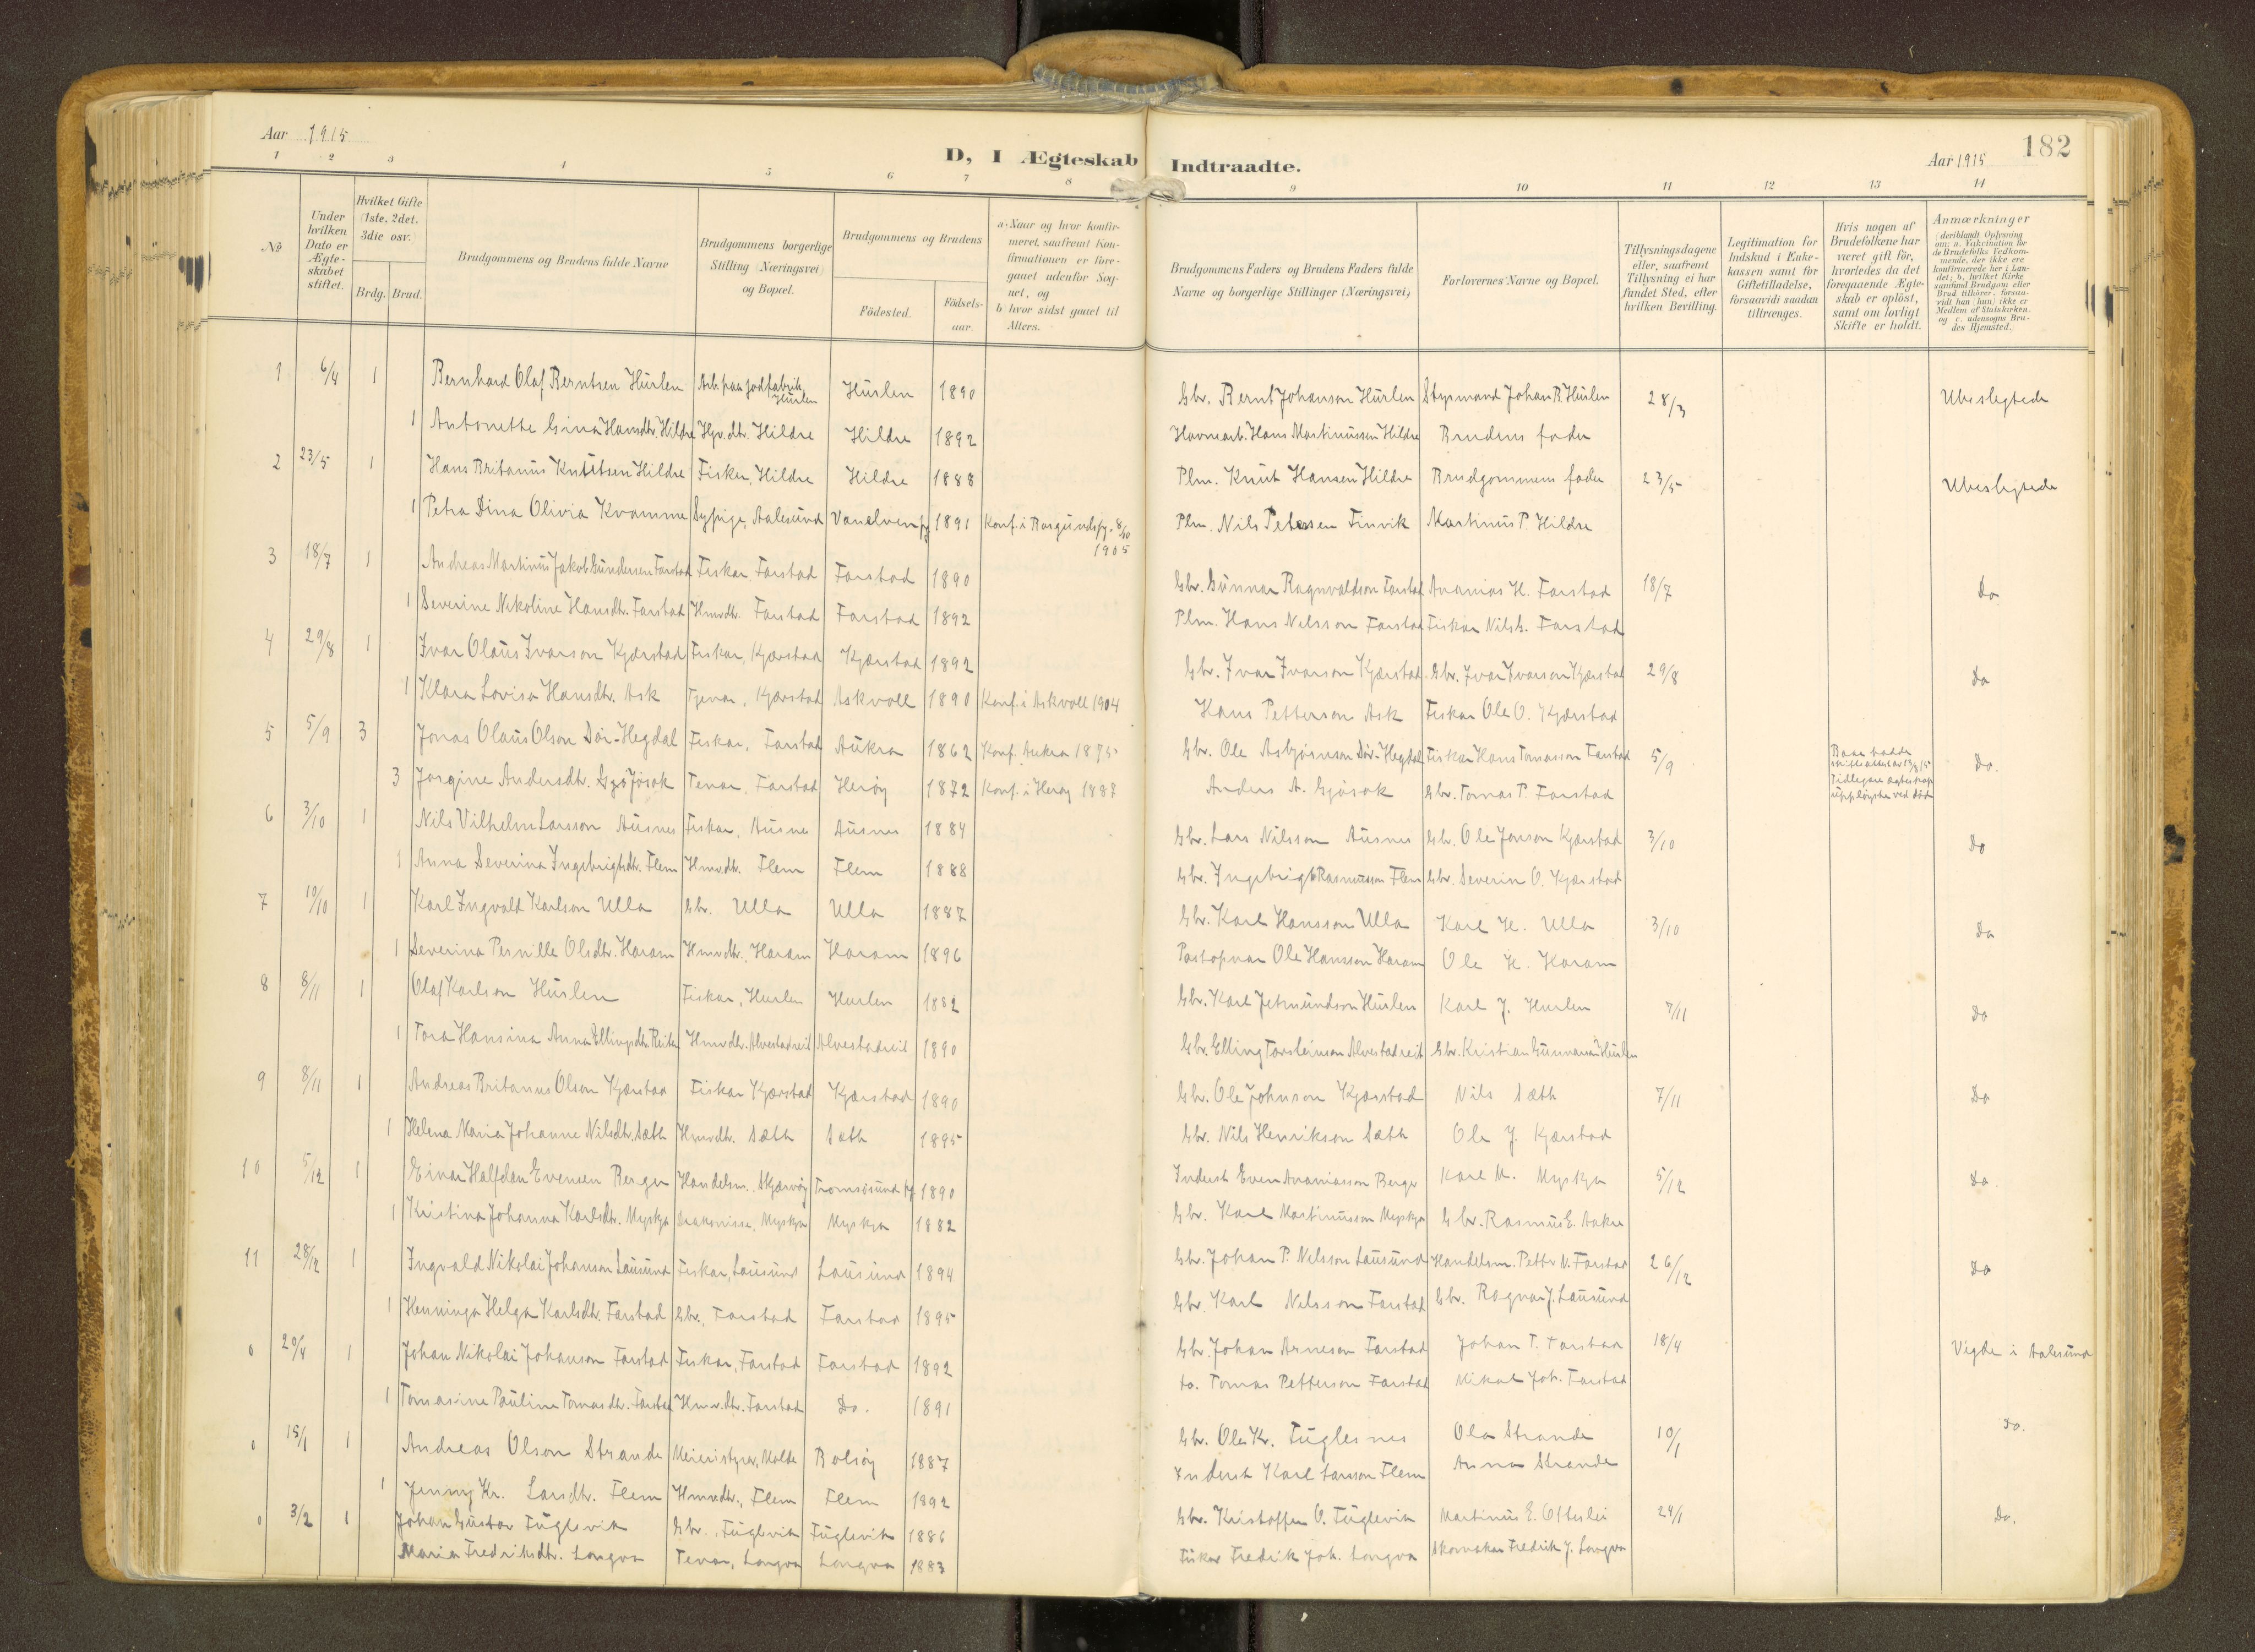 Aar 1915
D, I Ægteskab Indtraadte.
Aar 1915
182
1 2 3 4 5 6 7 8 9 10 11 12 13 14
No
Under hvilken Dato er Ægte-skabet stiftet.
Hvilket Gifte (1ste, 2det. 3die osv.)
Brdg. Brud.
Brudgommens og Brudens fulde Navne
Brudgommens borgerlige Stilling (Næringsvei) og Bopæl.
Brudgommens og Brudens
Födested.
Födsels-aar.
a. Naar og hvor konfir-meret, saafremt Kon-firmationen er fore-gaaet udenfor Sog-net, og
b. hvor sidst gaaet til Alters.
Brudgommens Faders og Brudens Faders fulde Navne og borgerlige Stillinger (Næringsvei)
Forlovernes Navne og Bopæl.
Tillysningsdagene eller, saafremt Tillysning ei har fundet Sted, efter hvilken Bevilling.
Legitimation for Indskud i Enke-kassen samt for Giftetilladelse, forsaavidt saadan tiltrænges.
Hvis nogen af Brudefolkene har været gift för, hvorledes da det foregaaende Ægte-skab er oplöst, samt om lovligt Skifte er holdt.
Anmærkninger (deriblandt Oplysning om: a. Vakcination for de Brudefolks Vedkom-mende, der ikke ere konfirmerede her i Lan-det; b. hvilket Kirke samfund Brudgom eller Brud tilhörer, forsaa-vidt han (hun) ikke er Medlem af Statskirken. og c. udensogns Bru-des Hjemsted.
1 6/4 1 Bernhard Olaf Berntsen Hurlen Arb. paa jodfabrik, Hurlen Hurlen 1890 Gbr. Bernt Johanson Hurlen Styrmand Johan B. Hurlen 28/3 Ubeslegtede
1 Antonette Gina Hansdtr. Hildre Hjv. dtr. Hildre Hildre 1892 Havnearb. Hans Martinussen Hildre Brudens fader
2 23/5 1 Hans Britanus Knutsen Hildre Fisker, Hildre Hildre 1888 Plm. Knut Hansen Hildre Brudgommens fader 23/5 Ubeslegtede
1 Petra Dina Olivia Kvamme Sypige, Aalesund Vanelven pg. 1891 Konf. i Borgunds pg. 8/10 1905 Plm. Nils Petersen Tinvik Martinus P. Hildre
3 18/7 1 Andreas Martinus Jakob Gundersen Farstad Fiskar Farstad Farstad 1890 Gbr. Gunnar Ragnvaldson Farstad Ananias H. Farstad 18/7 Do
1 Severine Nikoline Hansdtr. Farstad Hmvdtr. Farstad Farstad 1892 Plm. Hans Nilsson Farstad Fiskar Nils H. Farstad
4 29/8 1 Ivar Olaus Ivarson Kjærstad Fiskar, Kjærstad Kjærstad 1892 Gbr. Ivar Ivarson Kjærstad Gbr. Ivar Ivarson Kjærstad 29/8 Do
1 Klara Lovisa Hansdtr. Ask Tjenar, Kjærstad Askvoll 1890 Konf. i Askvoll 1904 Hans Petterson Ask Fiskar Ole O. Kjærstad
5 5/9 3 Jonas Olaus Olson Dör-Hegdal Fiskar, Farstad Aukra 1862 Konf. Aukra 1875 Gbr. Ole Asbjørnson Dör-Hegdal Fiskar Hans Tomasson Farstad 5/9 Baae hadde skifteattest av 13/8 15 Tidlegare egteskap uppløyste ved død Do.
3 Jorgine Andersdtr. Gjøsok Tenar, Farstad Herøy 1872 Konf. i Herøy 1887 Anders A. Gjøsok Gbr. Tomas P. Farstad
6 3/10 1 Nils Vilhelm Larsson Ausnes Fiskar, Ausnes Ausnes 1884 Gbr. Lars Nilsson Ausnes Gbr. Ole Jonson Kjærstad 3/10 Do
1 Anna Severina Ingebrigtsdtr. Flem Hmvdtr. Flem Flem 1888 Gbr. Ingebrigt Rasmusson Flem Gbr. Severin O. Kjærstad
7 10/10 1 Karl Ingvald Karlson Ulla Gbr. Ulla Ulla 1887 Gbr. Karl Hansson Ulla Karl H. Ulla 3/10 Do
1 Severina Pernille Olsdtr. Haram Hmvdtr., Haram Haram 1896 Postopnar Ole Hansson Haram Ole H. Haram
8 8/11 1 Olaf Karlson Hurlen Fiskar, Hurlen Hurlen 1882 Gbr. Karl Jetmundson Hurlen Karl J. Hurlen 7/11 Do
1 Tora Hansina Anna Ellingsdtr. Reiten Hmvdtr. Alvestadreit Alvestadreit 1890 Gbr. Elling Torsteinson Alvestadreit Gbr. Kristian Gunnarson Hurlen
9 8/11 1 Andreas Britanus Olson Kjærstad Fiskar Kjærstad Kjærstad 1890 Gbr. Ole Johnson Kjærstad Nils Sæth 7/11 Do
1 Helena Maria Johanne Nilsdtr. Sæth Hmvdtr. Sæth Sæth 1895 Gbr. Nils Henrikson Sæth Ole J. Kjærstad
10 5/12 1 Einar Halfdan Evensen Berger Handelsm., Skjærvøy Tromsøsund pg 1890 Inderst Even Ananiasson Berger Karl M. Myskja 5/12 Do.
1 Kristina Johanna Karlsdtr. Myskja Diakonisse, Myskja Myskja 1882 Gbr. Karl Martinusson Myskja Gbr. Rasmus E. Aakre
11 28/12 1 Ingvald Nikolai Johanson Lausund Fiskar, Lausund Lausund 1894 Gbr. Johan P. Nilsson Lausund Handelsm. Petter N. Farstad 26/12 Do
1 Henninga Helga Karlsdtr. Farstad Gbr., Farstad Farstad 1895 Gbr. Karl Nilsson Farstad Gbr. Ragnar J. Lausund
0 20/4 1 Johan Nikolai Johanson Farstad Fiskar, Farstad Farstad 1892 Gbr. Johan Arneson Farstad Johan T. Farstad 18/4 Vigde i Aalesund
1 Tomasine Pauline Tomasdtr. Farstad Hmv.dtr. Farstad Do. 1891 to. Tomas Petterson Farstad Mikal Joh. Farstad
0 15/1 1 Andreas Olson Strande Meieristyrar, Molde Bolsöy 1887 Gbr. Ole Kr. Fuglesnes Ola Strande 10/1 Do.
1 Jenny Kr. Larsdtr. Flem Hmvdtr., Flem Flem 1892 Inderst Karl Larsson Flem Anna Strande
0 3/2 1 Johan Gustav Fuglevik Gbr., Fuglevik Fuglevik 1886 Gbr. Kristoffer O. Fuglevik Martinus E. Otterlei 24/1 Do.
Maria Fredriksdtr. Longva Tenar, Longva Longva 1883 Fiskar Fredrik Joh. Longva Skomakar Fredrik J. Longva